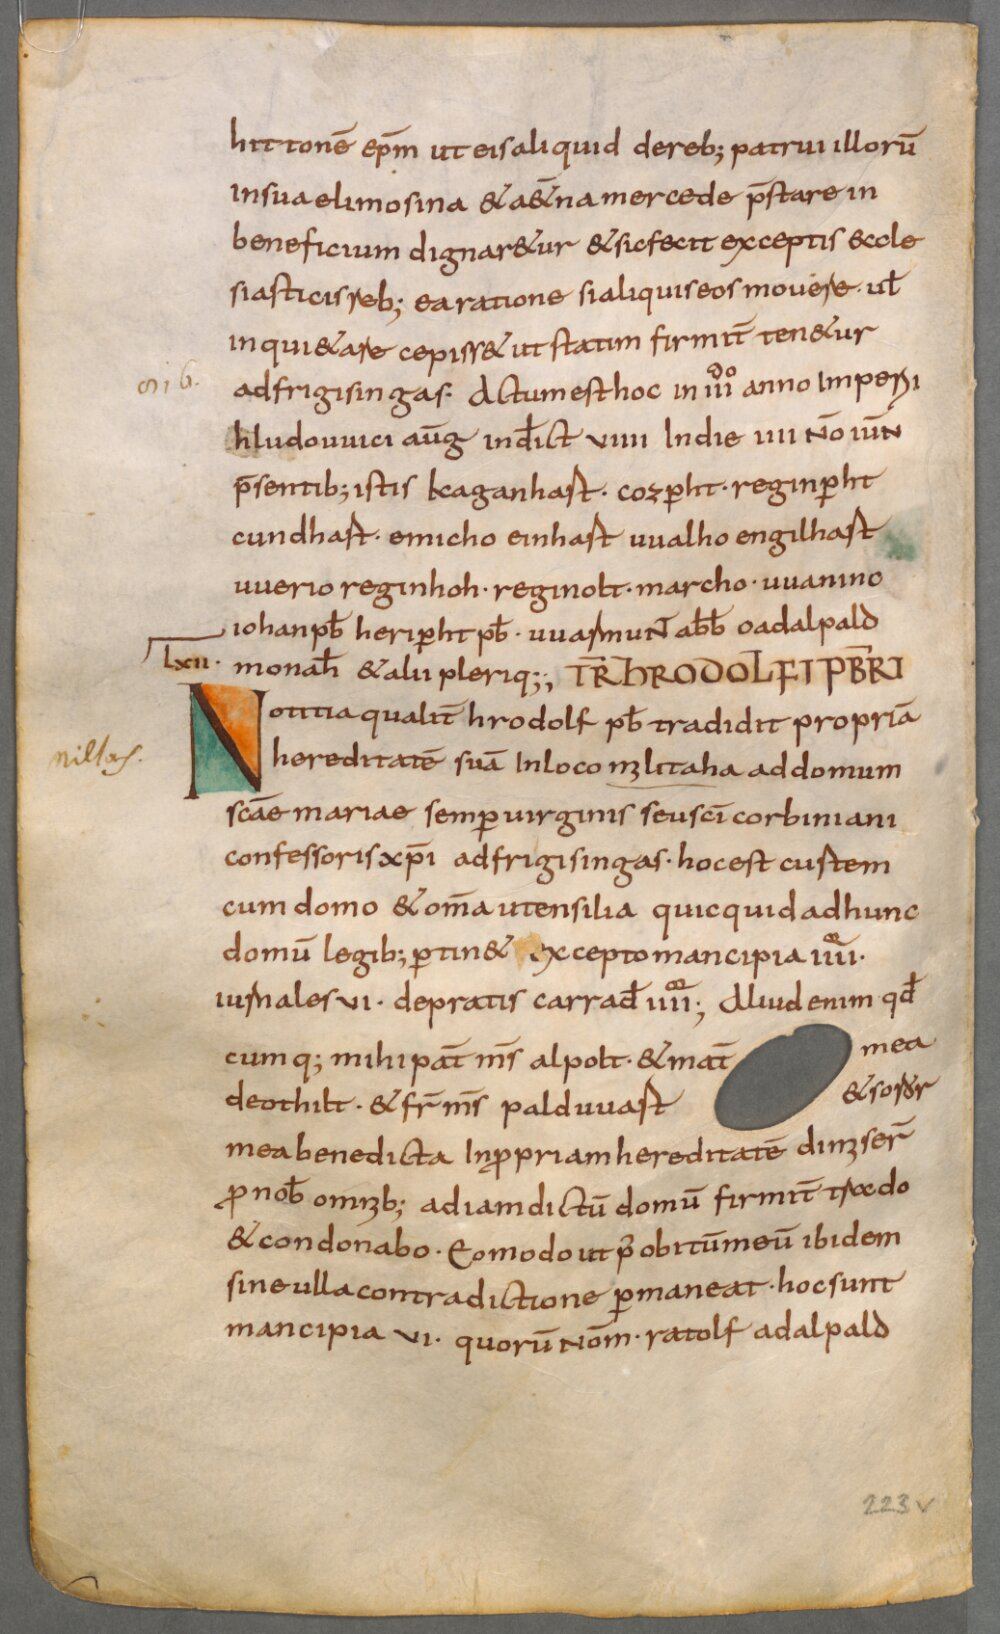 hittonē ep̄m ut eis aliquid dereb; patrui illorū
in sua elimosina & a&̄na mercede p̄stare in
beneficium dignar&ur & sic fecit exceptis eccle
siasticis reb; ea ratione si aliquis eos mouere · ul̄
inqui&are cepiss& ut statim firmit̄ ten&ur
ad frigisingas · Actum est hoc in iiii anno Imperii
hludouuici aūg ind̄ict viiii In die iiii No iūN
p̄sentib; istis kaganhast · cozp̄ht · reginp̄ht
cundhast · emicho einhast uualho engilhast
uuerio reginhoh · reginolt · marcho · uuanino
iohan pb̄ herip̄ht pb̄ · uuarmuN ab̄b oadalpald
Lxii · monah̄ & alii pleriq;; TR̄ HRODOLFI PB̄RI
Notitia qualit̄ hrodolf pb̄ tradidit propriā
hereditatē suā In loco mzlitaha ad domum
sc̄ae mariae semp̄ uirginis seu sc̄i corbiniani
confessoris xp̄i ad frigisingas · hoc est custem
cum domo & om̄a utensilia quicquid ad hunc
domū legib; p̄tin& excepto mancipia iiii ·
iurnales vi · de pratis carrad̄ iiii; Aliud enim qd̄
cumq; mihi pat̄ m̄s alpolt · & mat̄ mea
deothilt · & fr̄ m̄s palduuast & soror
mea benedicta In p̄priam hereditatē dimser̄
p̄ nob̄ omib; ad iam dictū domū firmit̄ trado
& condonabo · Eo modo ut p̄ obitū meū ibidem
sine ulla contradictione p̄maneat · hoc sunt
mancipia vi · quorū Nōm · ratolf adalpald
223v